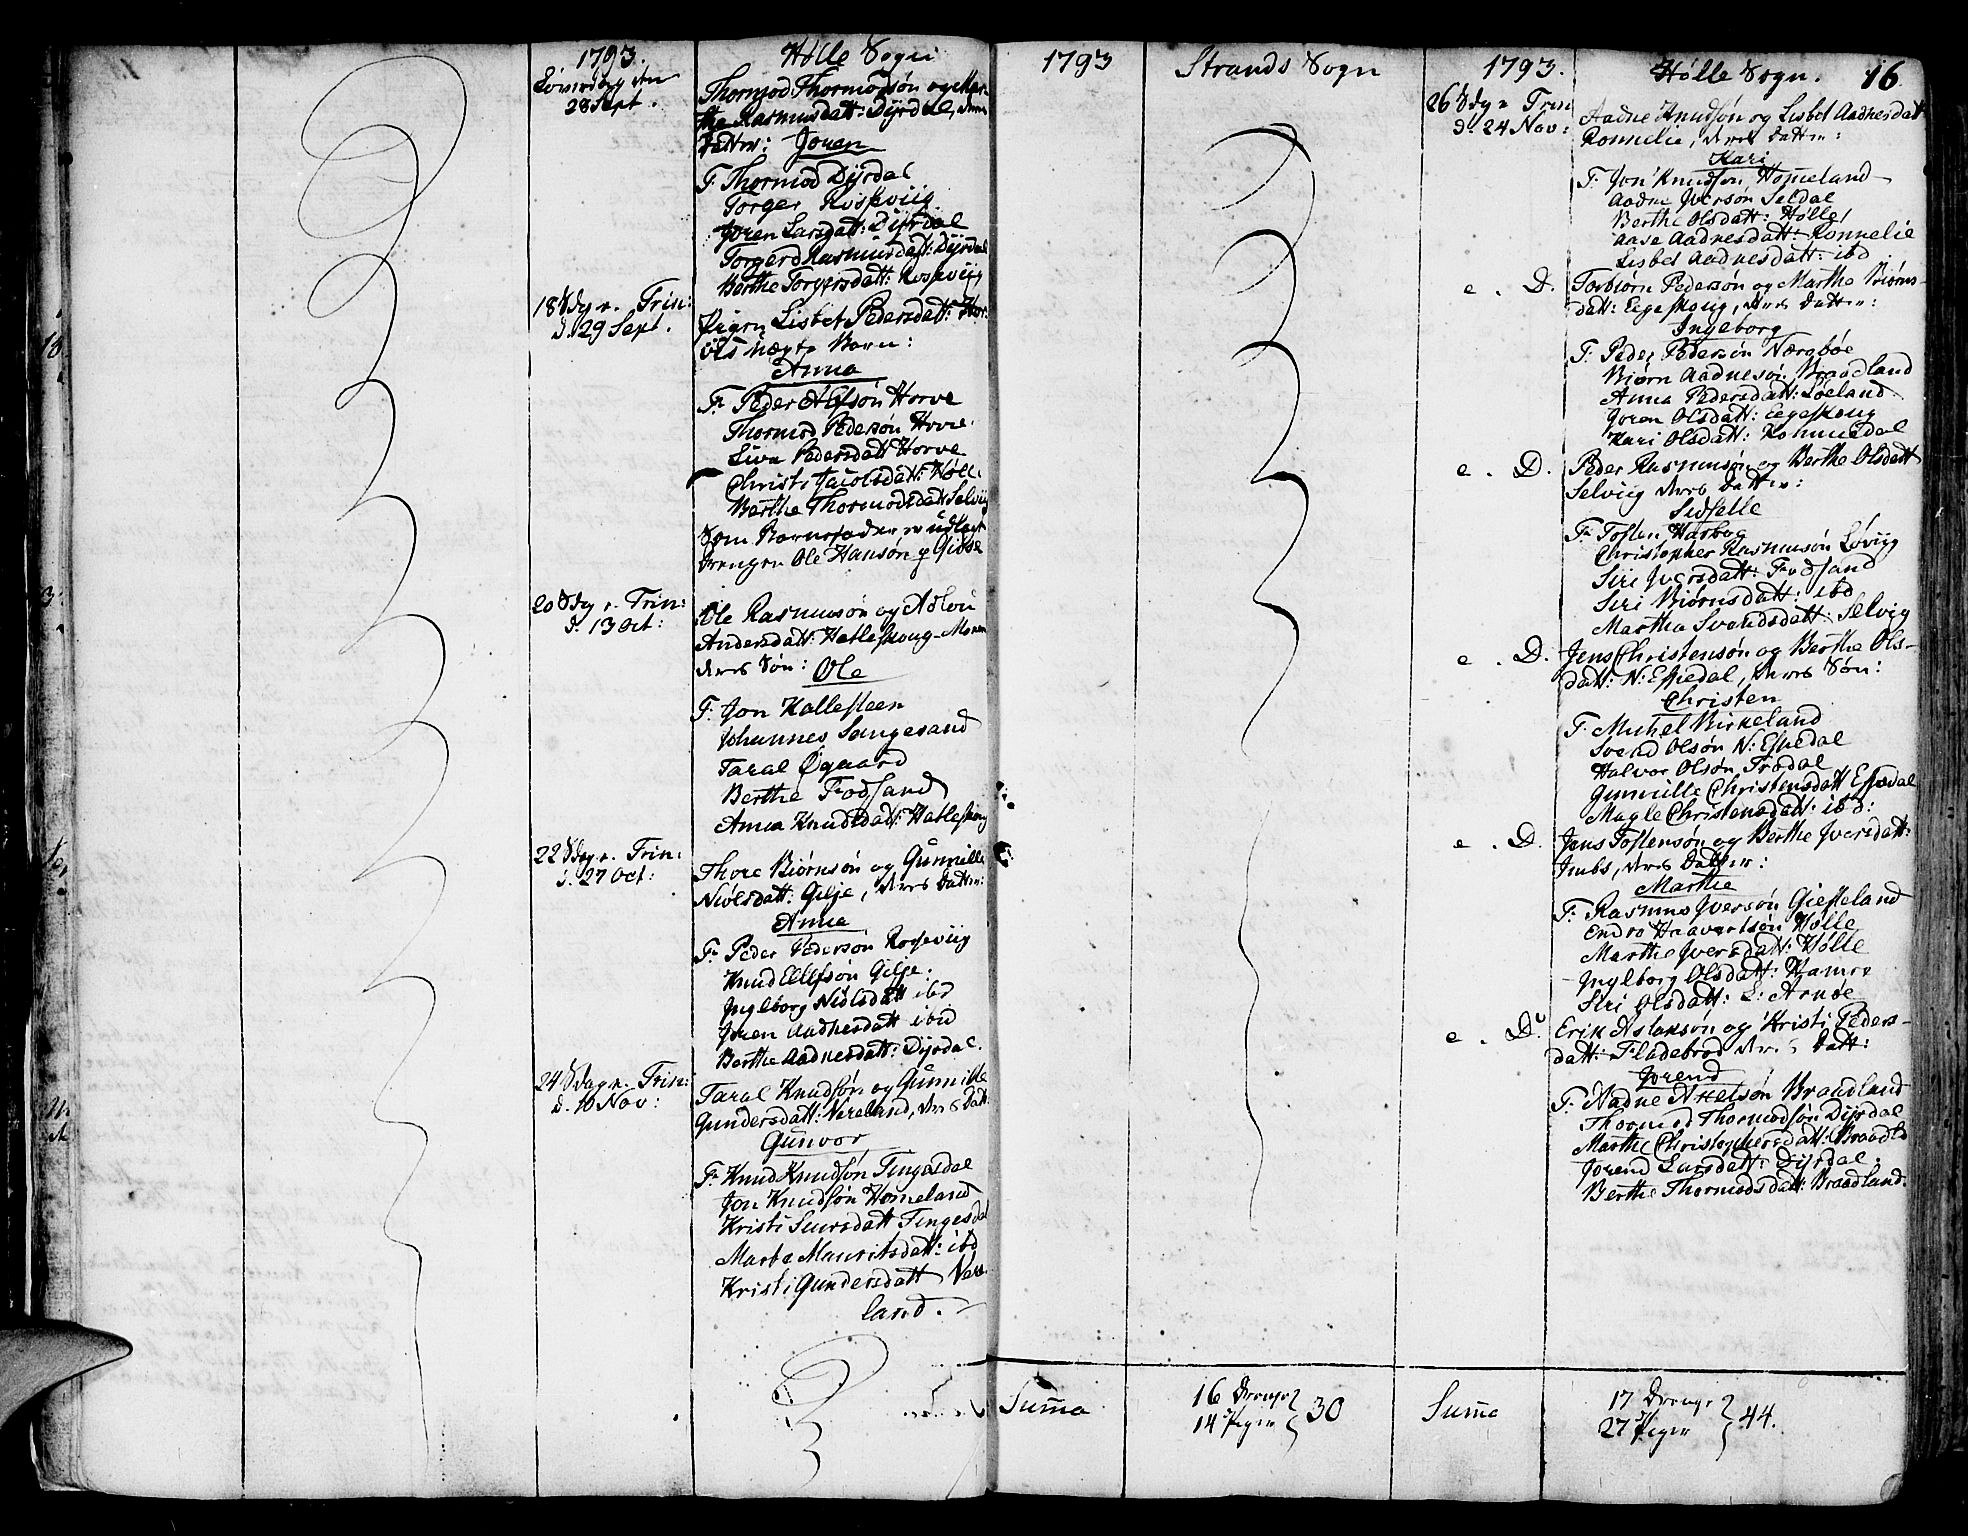 1793.
Hølle Sogn
Løverdag den
28 Sept.
Thormod Thormodsøn og Mar-
the Rasmusdatt: Dÿrdal, deres
Datter: Joren
F. Thormod Dÿrdal
Torger Roskviig
Joren Larsdatt: Dÿrdal
Torgerd Rasmusdatt: Dÿrdal
Berthe Torgersdatt: Roskviig
18 Sdg e. Trin:
d. 29 Sept.
Pigen Lisbet Pedersdatt: Hor-
ves uægte Barn:
Anna
F. Peder Olsøn Horve
Thormod Pedersøn Horve
Siva Pedersdatt Horve
Christi Jacobsdatt: Hølle
Berthe Thormodsdatt Selviig
Som Barnefader er udlagt
Drengen Ole Hansøn
20 Sdg e. Trin:
d. 13 Oct:
Ole Rasmusøn og Aslou
Andersdatt: Hatleskoug-Moen
deres Søn: Ole
F. Jon Kallesteen
Johannes Langesand
Taral Øgaard
Berthe Frodsand
Anna Knudsdatt: Hatleskoug
22 Sdg e. Trin:
d. 27 Oct:
Thore Biørnsøn og Gunnille
Niolsdatt: Gilje, deres Datter:
Anna
F. Peder Pedersøn Roskviig
Knud Ellefsøn Gilje
Ingeborg Niolsdatt ibd
Joren Aadnesdatt ibid
Berthe Aadnesdatt: Dÿrdal.
24 Sdag e. Trin:
d. 10 Nov:
Taral Knudsøn og Gunnille
Gundersdatt: Vereland, deres Datt:
Gunvor
F. Knud Knudsøn Tingesdal
Jon Knudsøn Homeland
Kristi Siursdatt Tingesdal
Marta Mauritsdatt: ibd
Kristi Gundersdatt Vere-
land.
1793
Strands Sogn
Summa
16 Drenge
14 Piger
30
1793.
Hølle Sogn.
16
26 Sdg e Trin
d. 24 Nov:
Aadne Knudsøn og Lisbet Aadnesdatt
Ronnelie, deres Datter:
Kari
F. Jon Knudsøn Homeland
Aadne Iversøn Seldal
Berthe Olsdatt: Hølle
Aase Aadnesdatt: Ronnelie
Lisbet Aadnesdatt: ibd
e. D.
Torbiørn Pedersøn og Marthe Biørns-
datt: Eigeskoug, deres Datter:
Ingeborg
F. Peder Pedersøn Nærgbøe
Biørn Aadnesøn Braadland
Anna Pedersdatt: Løeland
Joren Olsdatt: Eegeskoug
Kari Olsdatt: Kommedal
e. D.
Peder Rasmusøn og Berthe Olsdatt
Selviig deres Datter:
Sidselle
F. Tosten Harboe
Christopher Rasmusøn Løviig
Siri Iversdatt: Frodsand
Siri Biørnsdatt: ibd
Martha Svendsdatt: Selvig
e. D.
Jens Christensøn og Berthe Ols-
datt: N: Eskedal, deres Søn:
Christen
F. Michel Birkeland
Svend Olsøn N: Espedal
Halvor Olsøn Frødal
Gunnille Christensdatt Espedal
Magle Christensdatt: ibd:
e. D.
Jens Tostensøn og Berthe Iversdatt:
Imbs, deres Datter:
Marthe
F. Rasmus Iversøn Gieskeland
Endre Haavartsøn Hølle
Marthe Iversdatt: Hølle
Ingeborg Olsdatt: Hamre
Siri Olsdatt: L: Arnøe
e. D.
Erik Aslaksøn og Kristi Peders-
datt: Fladebrød deres Datt:
Jorend
F. Aadne Axelsøn Braadland
Thormod Thormodsøn Dÿrdal
Marthe Christophersdatt: Braadld
Jorend Larsdatt: Dÿrdal.
Berthe Thormodsdatt: Braadland.
Summa
17 Drenge
27 Piger
44.